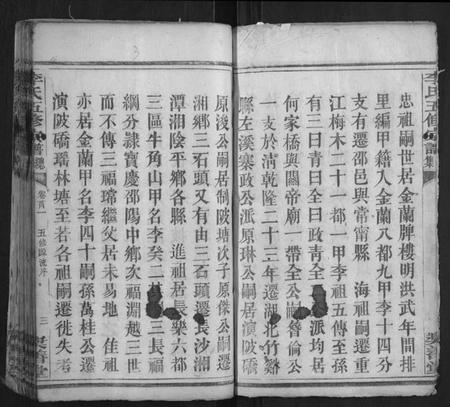 忠祖嗣世居金蘭牌樓明洪武年間排
里編甲籍入金蘭八都九甲李十四分
支有遷邵邑與常甯縣　海祖嗣遷重
江梅木二十一都一甲李祖五傳至孫
有三曰青曰全曰政青全　派均居
何家橋與關帝廟一帶全公嗣晉倫公
一支於清乾隆二十三年遷湖北竹谿
縣左溪寨政公派原琳公嗣居演陂橋
原浚公嗣居制陂塘次子原傑公嗣遷
湘鄉三石頭又有由三石頭遷長沙湘
潭湘陰平鄉各縣　進祖居長樂六都
三區牛角山甲名李癸二　三長福
綱分隸寶慶邵陽中鄉次福淵越三世
而不傳三福璿繼父居未易地　佳祖
亦居金蘭甲名李四十嗣孫萬桂公遷
演陂橋瑶林塘至若各祖嗣遷徙失考
李氏五修
卷首一
五修源流序
三